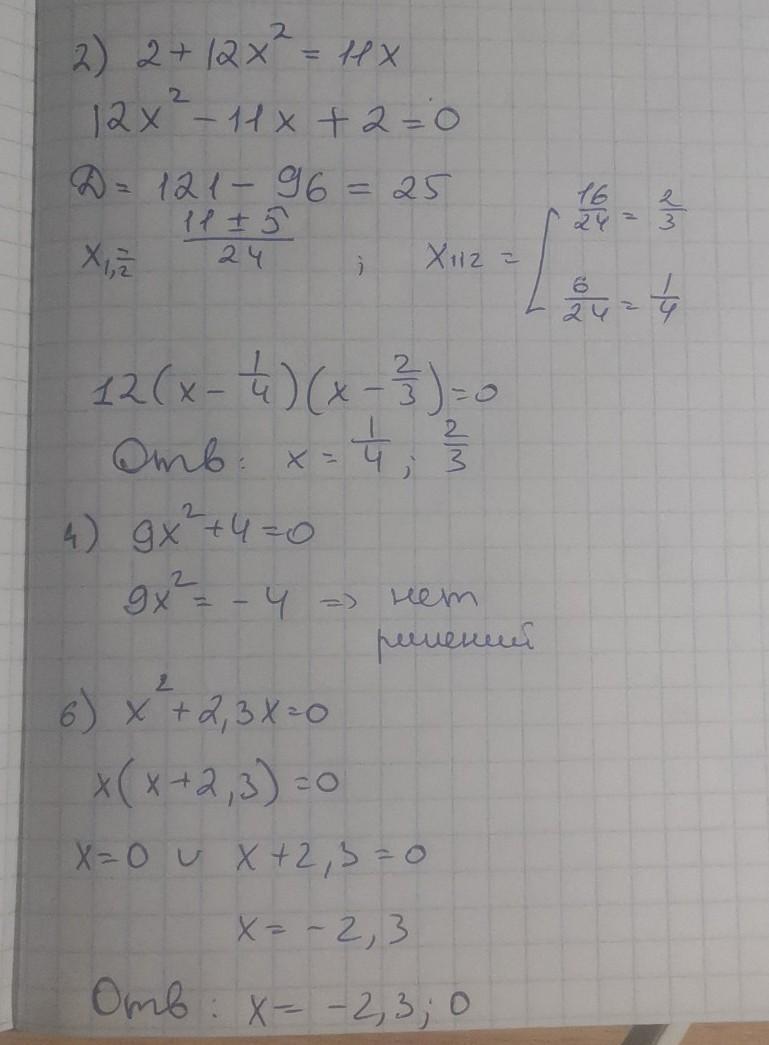 2) 2 + 12x² = 11x
12x² - 11x + 2 = 0
D = 121 - 96 = 25
x₁,₂ = (11 ± 5)/24 ; x₁,₂ = [ 16/24 = 2/3
6/24 = 1/4
12(x - 1/4)(x - 2/3) = 0
Отв: x = 1/4 ; 2/3
4) 9x² + 4 = 0
9x² = - 4 => нет
решений
6) x² + 2,3x = 0
x(x + 2,3) = 0
x = 0 ∪ x + 2,3 = 0
x = - 2,3
Отв: x = -2,3 ; 0